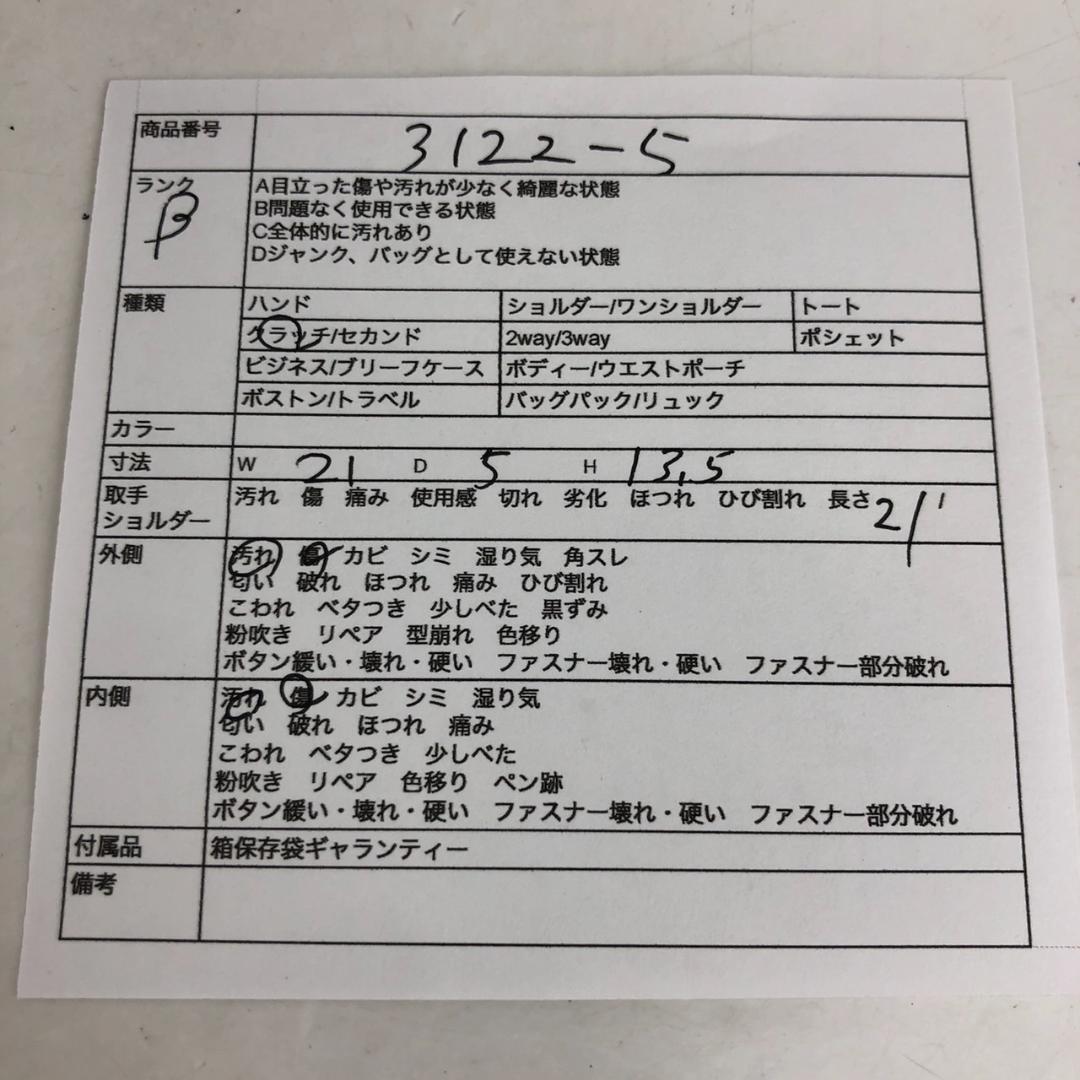 商品番号 3122-5
ランク B
A目立った傷や汚れが少なく綺麗な状態
B問題なく使用できる状態
C全体的に汚れあり
Dジャンク、バッグとして使えない状態
種類 ハンド ショルダー/ワンショルダー トート
クラッチ/セカンド 2way/3way ポシェット
ビジネス/ブリーフケース ボディー/ウエストポーチ
ボストン/トラベル バッグパック/リュック
カラー
寸法 W 21 D 5 H 13.5
取手 汚れ 傷 痛み 使用感 切れ 劣化 ほつれ ひび割れ 長さ 21
ショルダー
外側 汚れ 傷 カビ シミ 湿り気 角スレ
匂い 破れ ほつれ 痛み ひび割れ
こわれ ベタつき 少しべた 黒ずみ
粉吹き リペア 型崩れ 色移り
ボタン緩い・壊れ・硬い ファスナー壊れ・硬い ファスナー部分破れ
内側 汚れ 傷 カビ シミ 湿り気
匂い 破れ ほつれ 痛み
こわれ ベタつき 少しべた
粉吹き リペア 色移り ペン跡
ボタン緩い・壊れ・硬い ファスナー壊れ・硬い ファスナー部分破れ
付属品 箱保存袋ギャランティー
備考